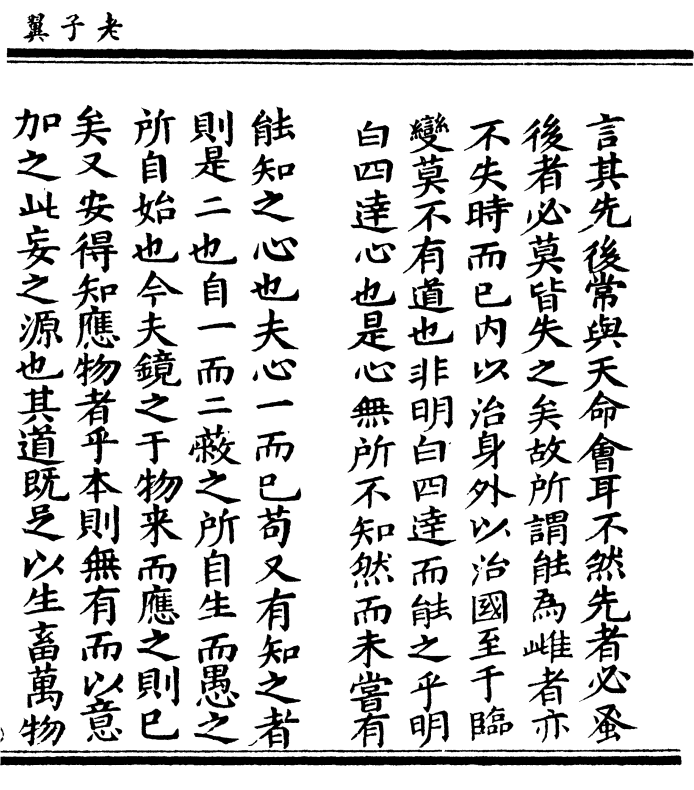 老子翼
言其先後常與天命會耳不然先者必蚤
後者必莫皆失之矣故所謂能為雌者亦
不失時而已内以治身外以治國至于臨
變莫不有道也非明白四達而能之乎明
白四達心也是心無所不知然而未嘗有
能知之心也夫心一而已苟又有知之者
則是二也自一而二蔽之所自生而愚之
所自始也今夫鏡之于物来而應之則已
矣又安得知應物者乎本則無有而以意
加之此妄之源也其道既足以生畜萬物